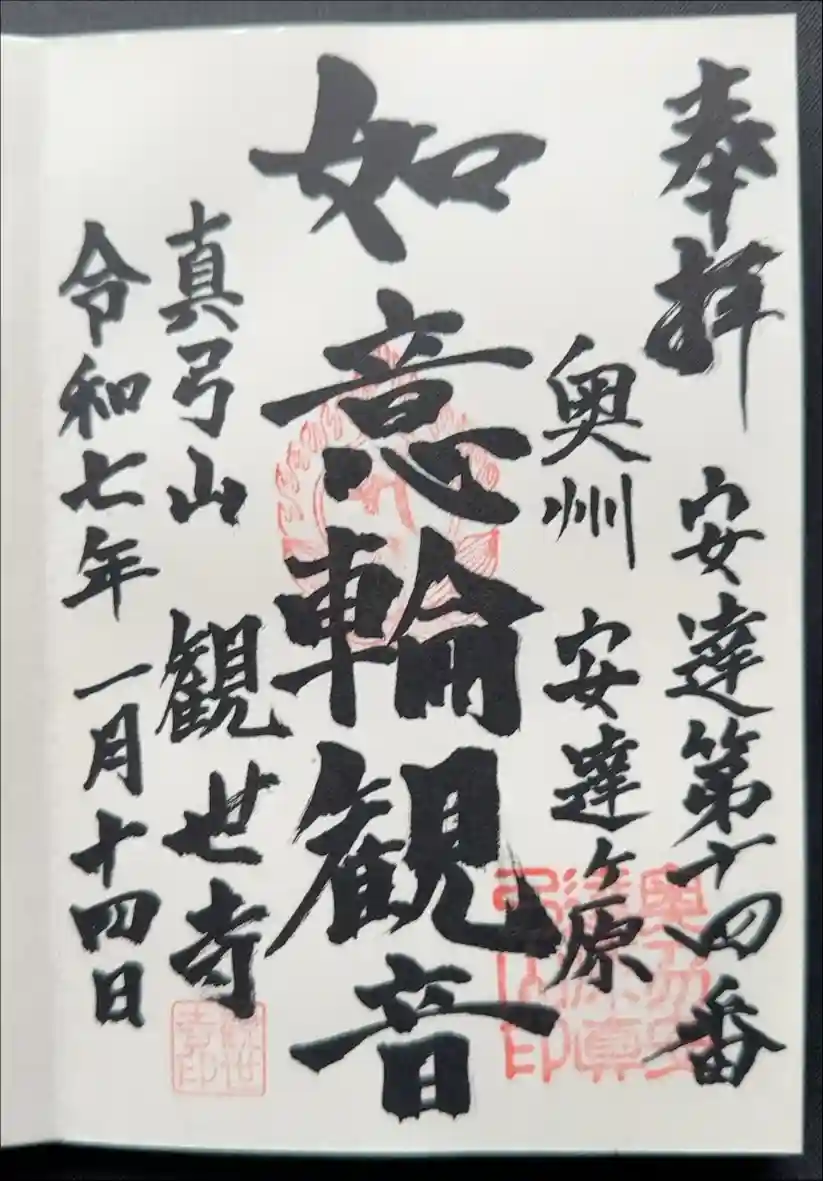 奉拝
安達第十四番
奥州
安達ヶ原
如意輪観音
真弓山
観世寺
令和七年
一月十四日